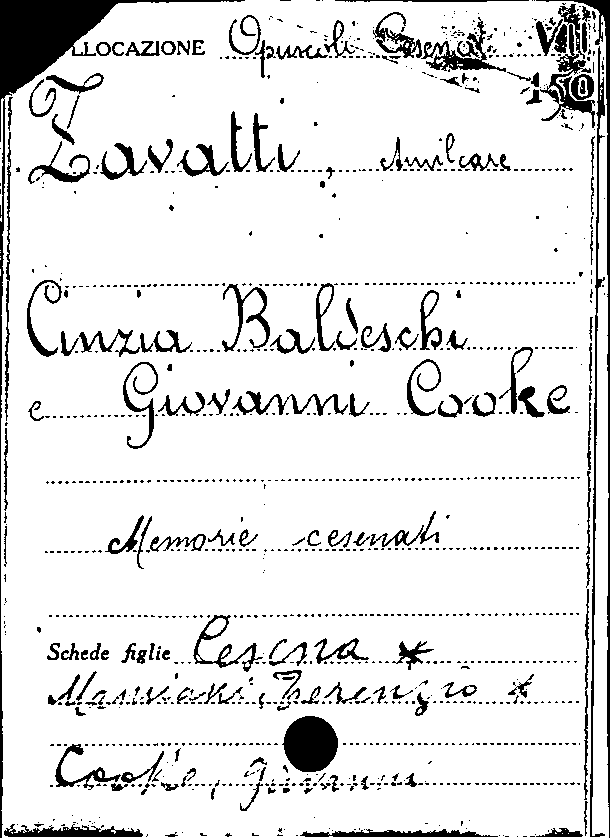 LLOCAZIONE Opuscoli Cesenat. VII
150
Zavatti, Amilcare
Cinzia Baldeschi
e Giovanni Cooke
Memorie cesenati
Schede figlie Cesena *
Mamiani, Terenzio *
Cooke, Giovanni